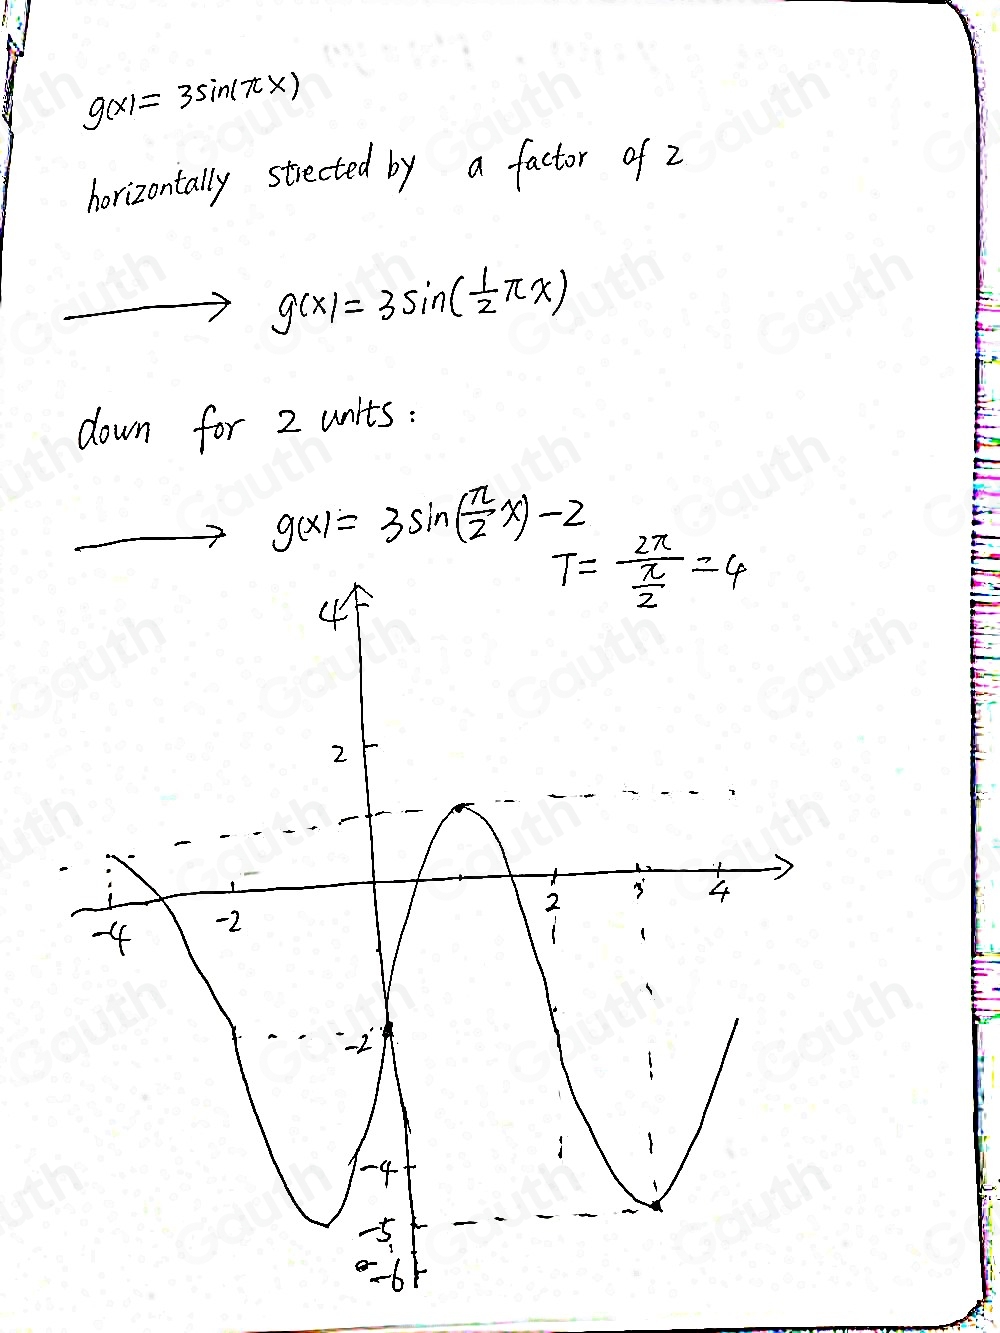 g(x) = 3sin(πx)
horizontally strected by a factor of 2
g(x) = 3sin(1/2 πx)
down for 2 units:
g(x) = 3sin(π/2 x) - 2
T = 2π / (π/2) = 4
4
2
-4 -2 2 3 4
-2
-4
-5
-6
Gauth